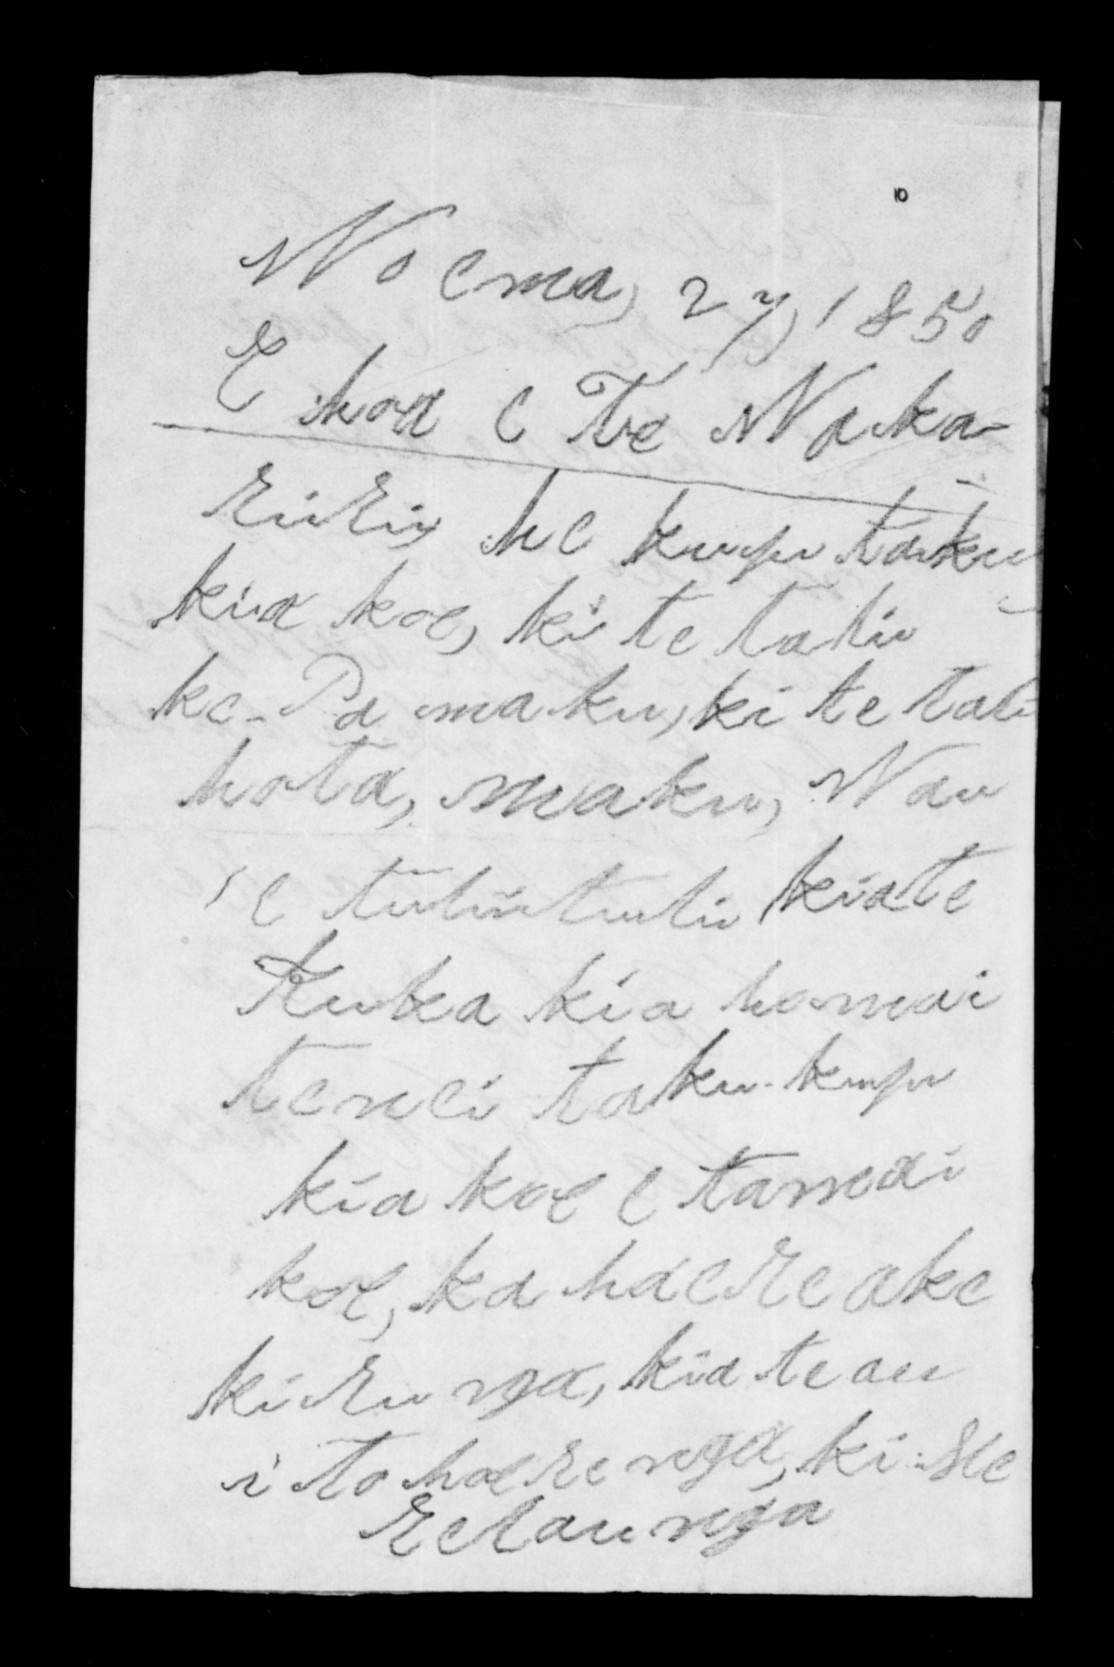 10
Noema, 27, 1850
E hoa e Te Maka-
rini, he kupu taku
kia koe, ki te tahi
ke-Pa maku, ki te tahi
hota, maku, Nau
e tuhituhi kia te
Kuka kia homai
tenei taku-kupu
kia koe e tamai
koe, ka haere ake
ki runga, kia te au
i to haerenga, ki He
retaunga